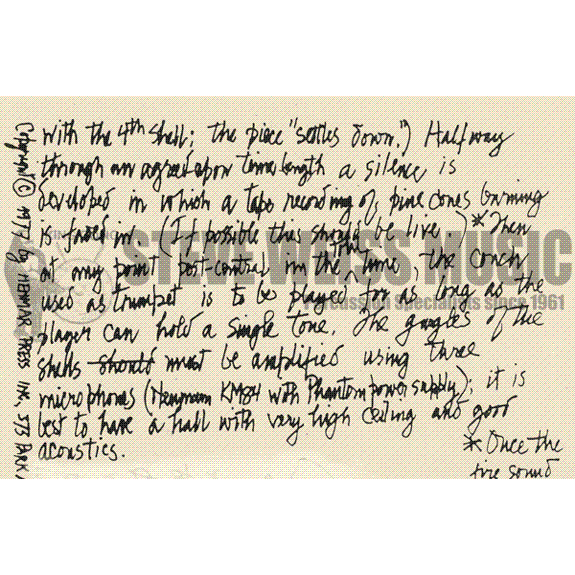 with the 4th shell; the piece "settles down.") Halfway
through an agreed upon time length a silence is
developed in which a tape recording of pine cones burning
is faded in (If possible this should be live.) * Then
at any point post-central in the time, the conch
used as trumpet is to be played for as long as the
player can hold a single tone. The gurgles of the
shells should must be amplified using three
microphones (Neumann KM84 with Phantom power supply); it is
best to have a hall with very high ceiling and good
acoustics.
* Once the
fire sound
Copyright © 1977 by HENMAR PRESS INC. 373 PARK
STEVE WEISS MUSIC
percussion specialists since 1961